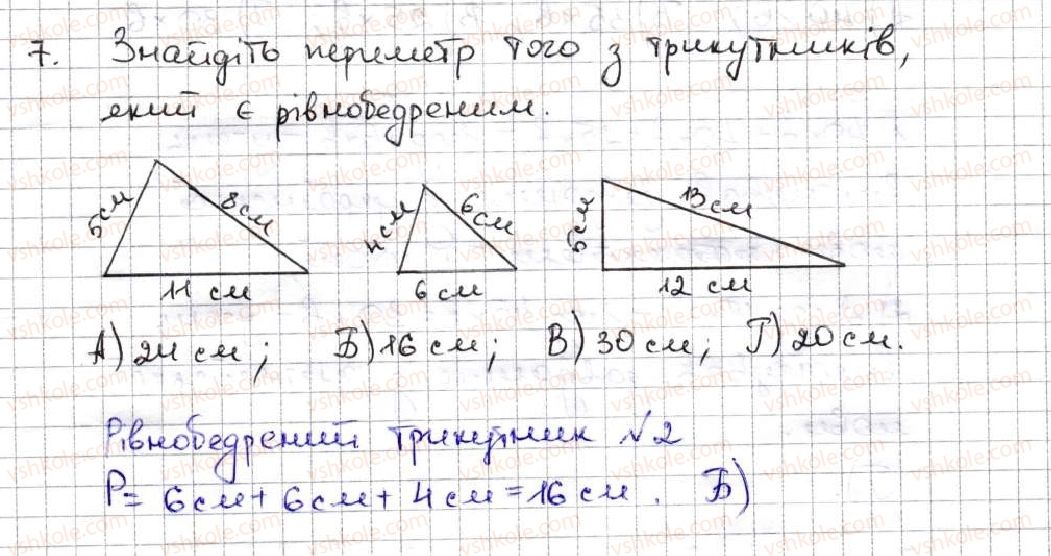 7. Знайдіть периметр того з трикутників,
який є рівнобедреним.
5см 8см 11 см
4см 6см 6 см
5см 13см 12 см
А) 24 см; Б) 16 см; В) 30 см; Г) 20 см.
Рівнобедрений трикутник №2
P= 6см + 6см + 4см = 16 см. Б)